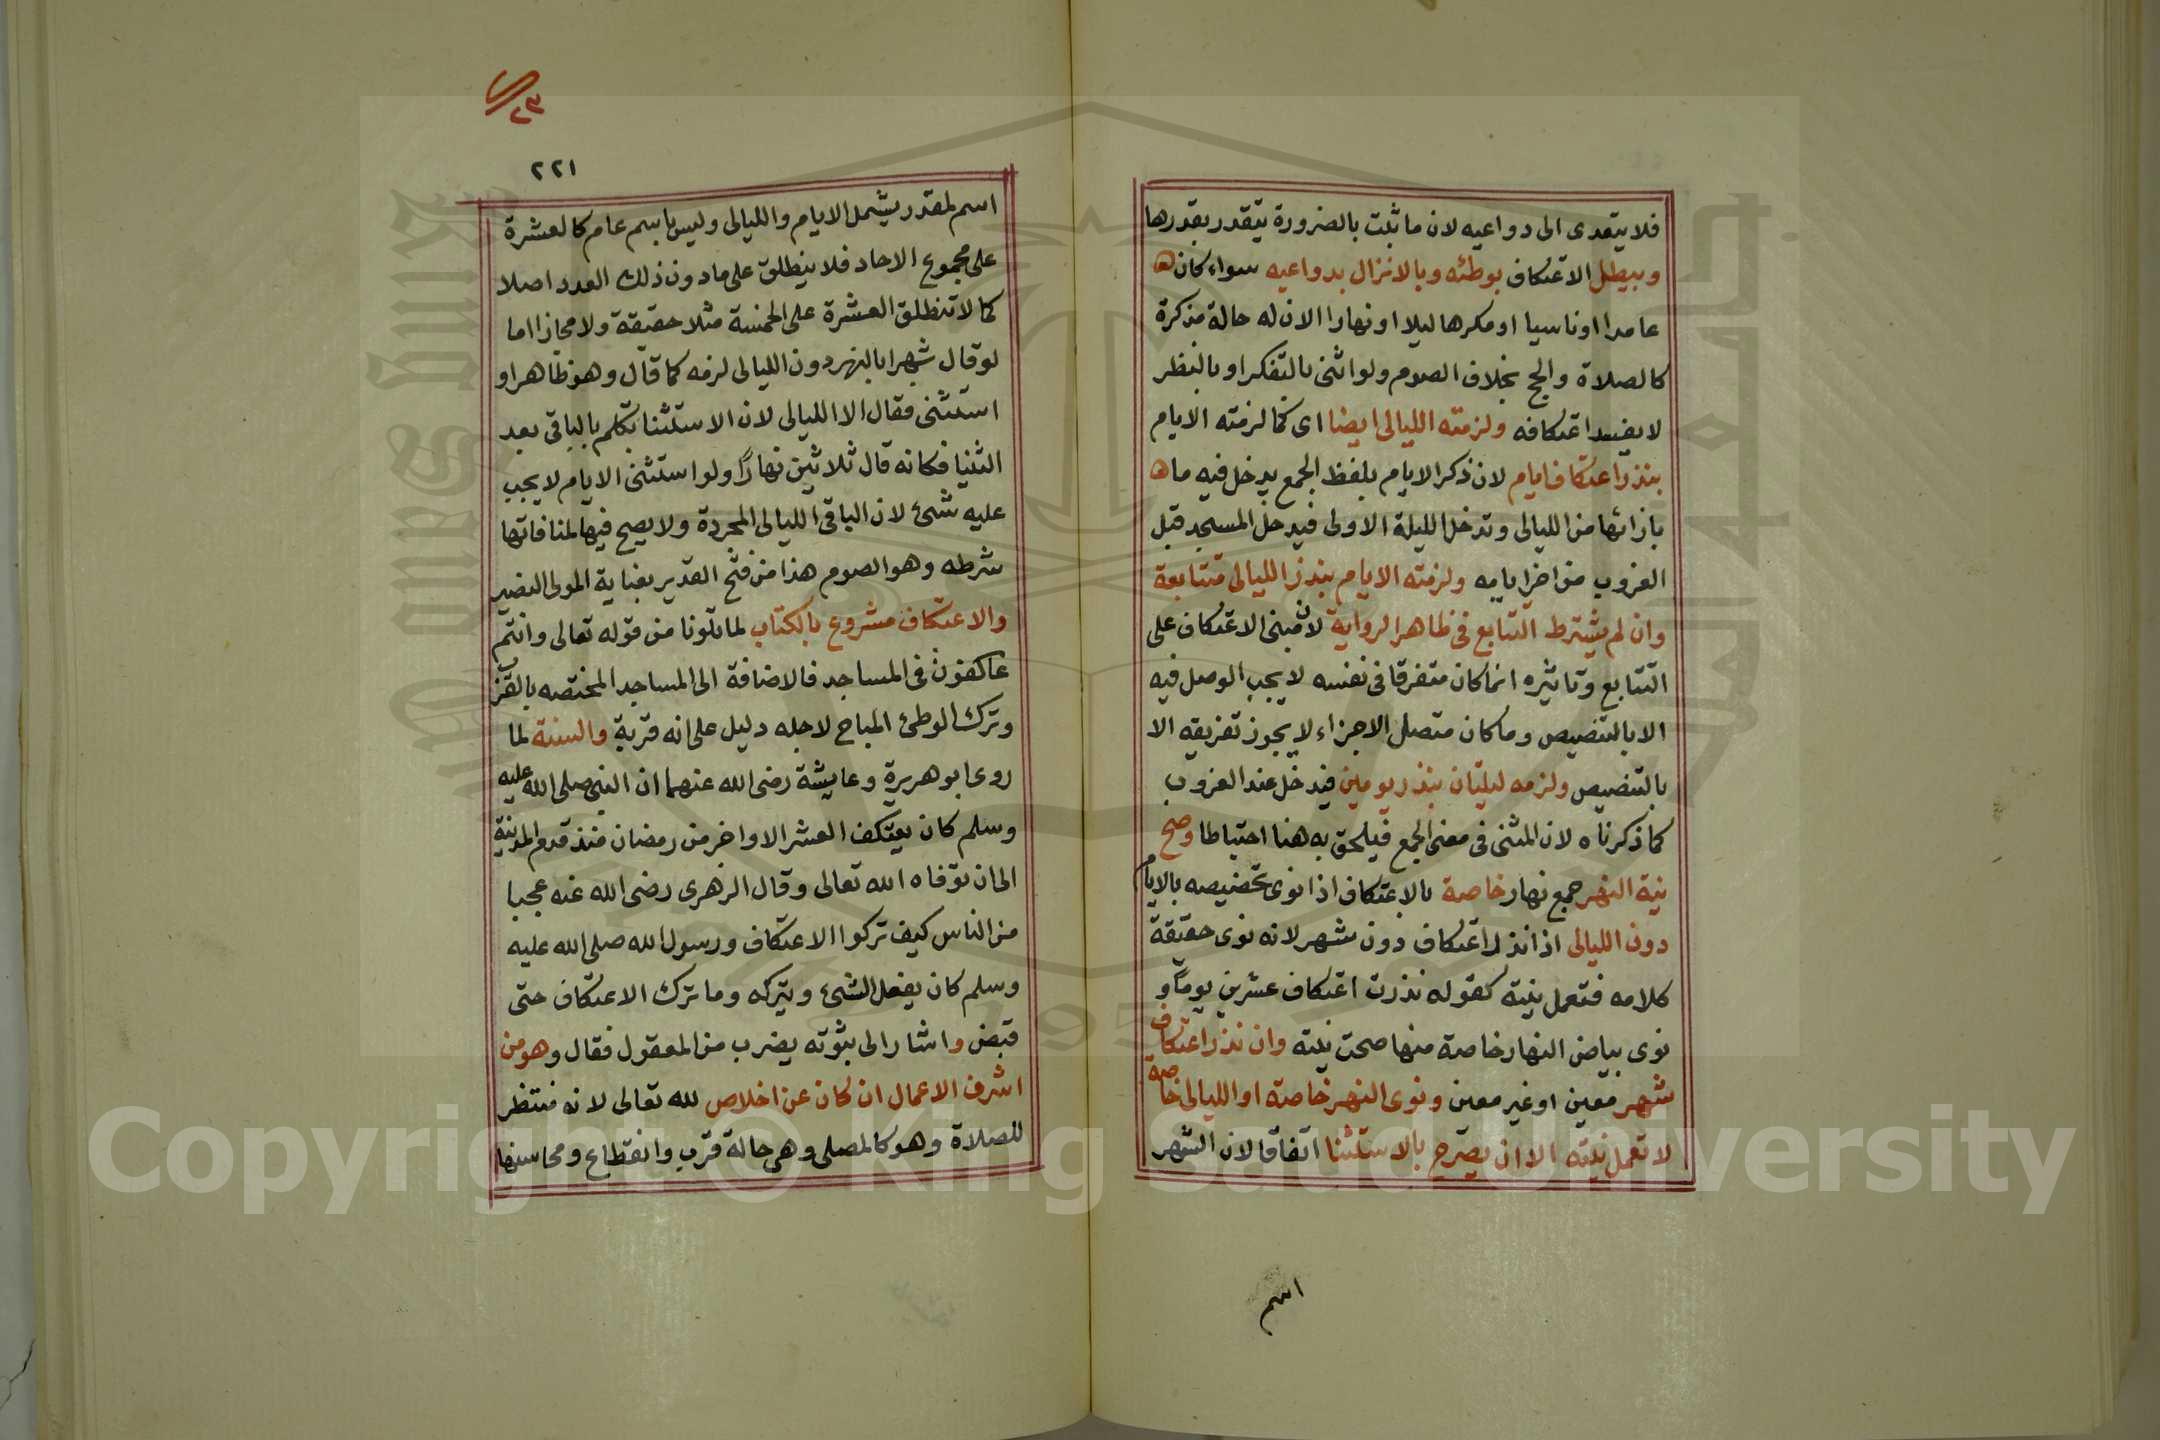 فلا يتعدى الى دواعيه لان ما ثبت بالضرورة يتقدر بقدرها
ويبطل الاعتكاف بوطئه وبالانزال بدواعيه سواء كان
عامدا او ناسيا او مكرها ليلا او نهارا الان له حالة مذكرة
كالصلاة والحج بخلاف الصوم ولو بالتفكر او بالنظر
لا يفسد اعتكافه ولزمته الليالى ايضا اى كما لزمته الايام
بنذر اعتكاف ايام لان ذكر الايام بلفظ الجمع يدخل فيه ما
بازائها من الليالى وتدخل الليلة الاولى فيدخل المسجد قبل
الغروب من اخر ايامه ولزمته الايام بنذر الليالى متتابعة
وان لم يشترط التتابع فى ظاهر الرواية لان مبنى الاعتكاف على
التتابع وتاثيره انما كان متفرقا فى نفسه لا يجب الوصل فيه
الا بالتنصيص وما كان متصل الاجزاء لا يجوز تفريقه الا
بالتنصيص ولزمه ليلتان بنذر يومين فيدخل عند الغروب
كما ذكرناه لان المثنى فى معنى الجمع فيلحق به هنا احتياطا وصح
نية النهر جمع نهار خاصة بالاعتكاف اذا نوى تخصيصه بالايام
دون الليالى اذا نذر اعتكاف دون شهر لانه نوى حقيقة
كلامه فتعمل نيته كقوله نذرت اعتكاف عشرين يوماً و
نوى بياض النهار خاصة منها صحت نيته وان نذر اعتكاف
شهر معين او غير معين ونوى النهر خاصة او الليالى خاصة
لا تعمل نيته الا ان يصرح بالاستثنا اتفاقا لان الشهر
اسم
٢٣
٢٢١
اسم لمقدر يشمل الايام والليالى وليس باسم عام كالعشرة
على مجموع الاحاد فلا ينطلق على ما دون ذلك العدد اصلا
كما لا تنطلق العشرة على الخمسة مثلا حقيقة ولا مجازا اما
لو قال شهرا بالنهر دون الليالى لزمه كما قال وهو ظاهر او
استثنى فقال الا الليالى لان الاستثنا تكلم بالباقى بعد
الثنيا فكانه قال ثلاثين نهاراً ولو استثنى الايام لا يجب
عليه شئ لان الباقى الليالى المجردة ولا يصح فيها لمنافاتها
شرطه وهو الصوم هذا من فتح القدير بعناية المولى النصير
والاعتكاف مشروع بالكتاب لما تلونا من قوله تعالى وانتم
عاكفون فى المساجد فالاضافة الى المساجد المختصه بالقرب
وترك الوطئ المباح لاجله دليل على انه قربة والسنة لما
روى ابو هريرة وعايشة رضى الله عنهما ان النبى صلى الله عليه
وسلم كان يعتكف العشر الاواخر من رمضان منذ قدم المدينة
الى ان توفاه الله تعالى وقال الزهرى رضى الله عنه عجبا
من الناس كيف تركوا الاعتكاف ورسول الله صلى الله عليه
وسلم كان يفعل الشئ ويتركه وما ترك الاعتكاف حتى
قبض واشار الى ثبوته بضرب من المعقول فقال وهو من
اشرف الاعمال ان كان عن اخلاص لله تعالى لانه منتظر
للصلاة وهو كالمصلى وهى حالة قرب وانقطاع ومحاسنها
Copyright © King Saud University
King Saud University
1957